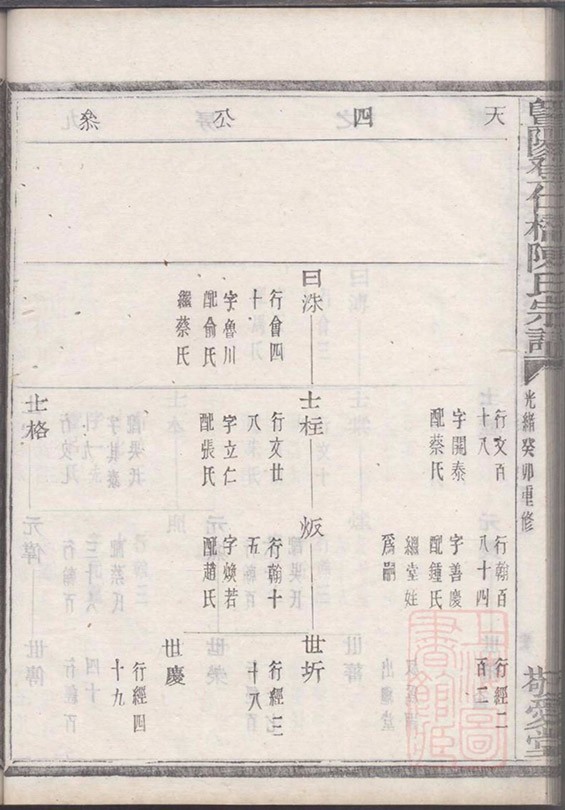 曁陽登仕橋陳氏宗譜
光緒癸卯重修
敬愛堂
天四公叅
行文百
十八
字開泰
配蔡氏
行翰百
八十四
字善慶
配鍾氏
繼堂姪
爲嗣
行經二
百二
曰洙
行會四
十
字魯川
配俞氏
繼蔡氏
士柱
行文廿
八
字立仁
配張氏
行翰十
五
字煥若
配趙氏
世圻
行經三
十八
世慶
行經四
十九
士格
上海圖書館藏